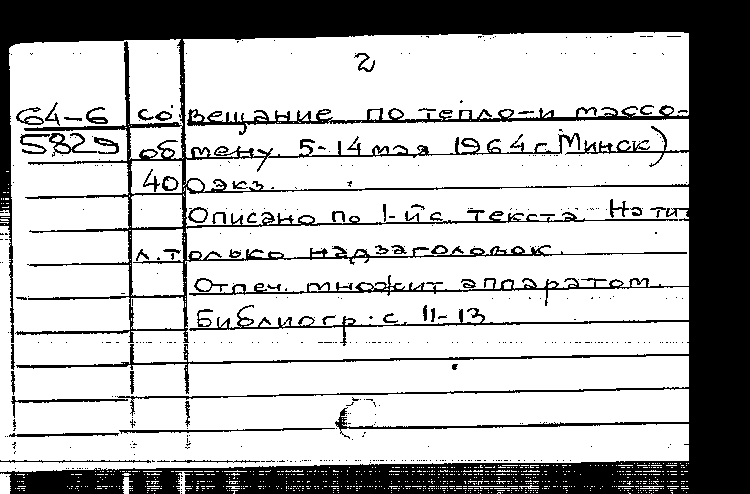 2
64-6 совещание по тепло-и массо-
5829 обмену. 5-14 мая 1964 г. Минск)
400 экз.
Описано по 1-й с. текста. На тит
л. только надзаголовок.
Отпеч. множит аппаратом.
Библиогр. с. 11-13